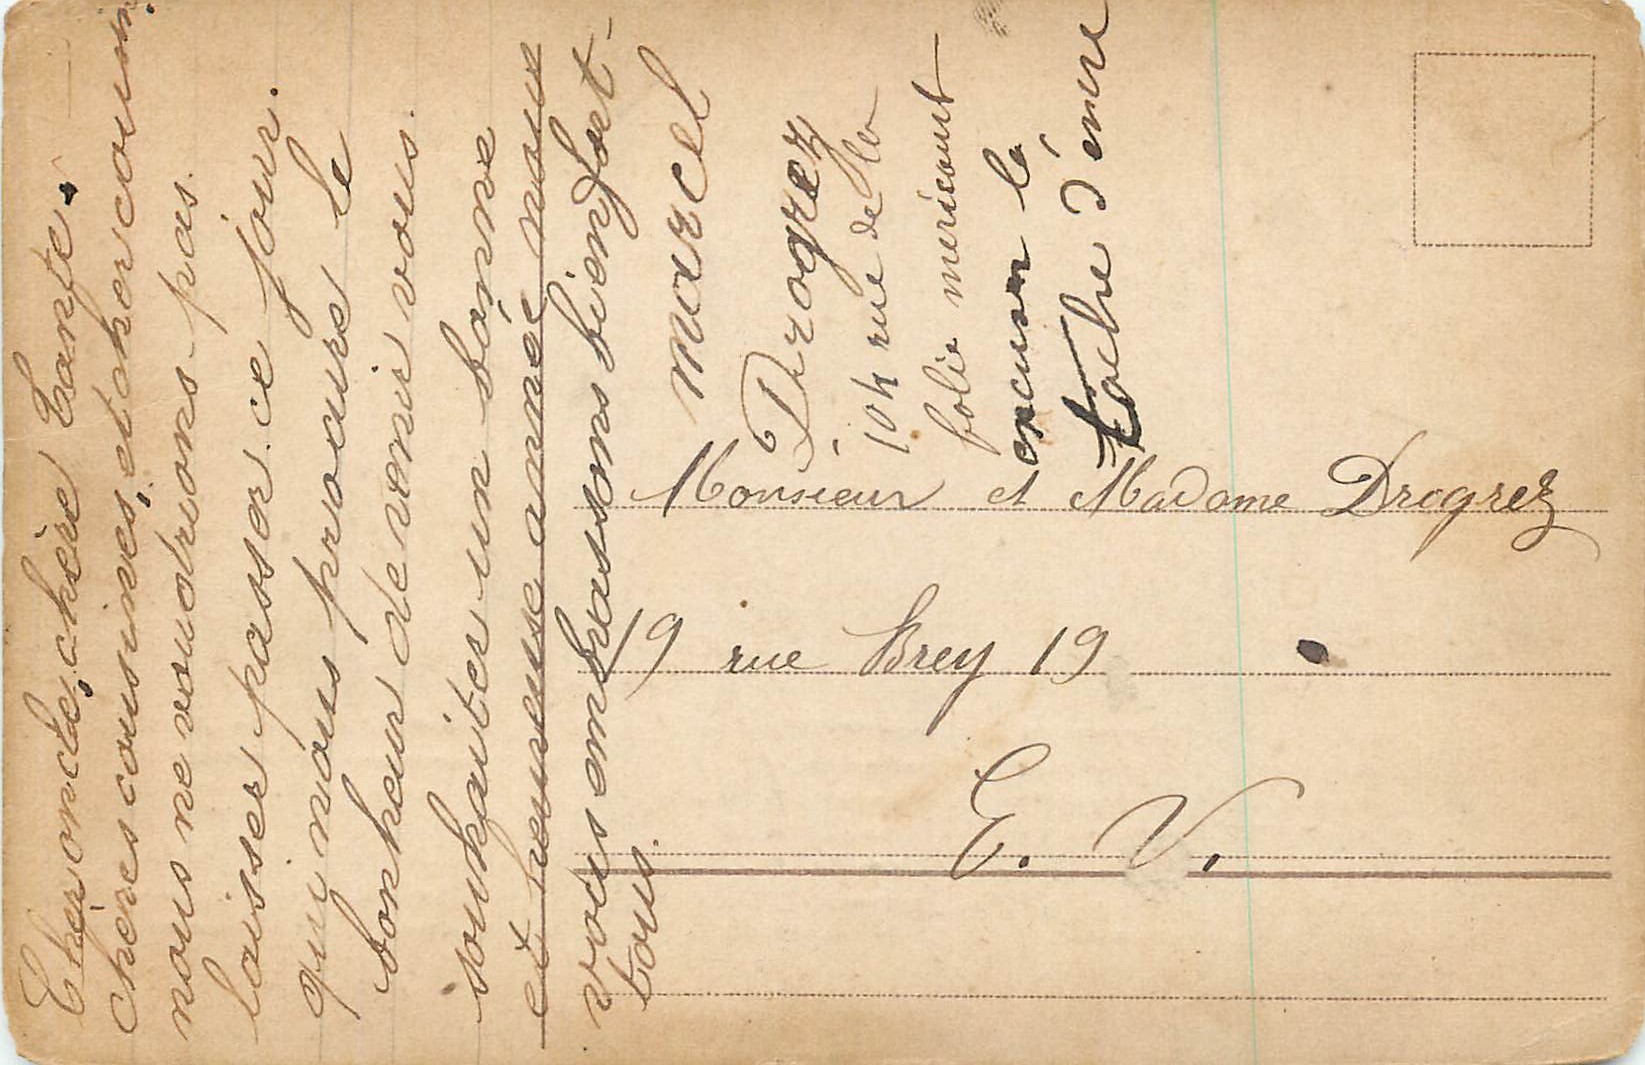 Chèr oncle, chère tante.
chères cousines, et cher cousin.
nous ne voudrions pas.
laisser passer ce jour.
qui nous procure le
bonheur de venir vous.
souhaiter un bonne
et heureuse année nous
vous embrassons bien fort
tous.
Marcel
Drogrez
104 rue de la
folie mericourt
encuser la
tache d'encre
Monsieur et Madame Drogrez
19 rue Brey 19
E. V.